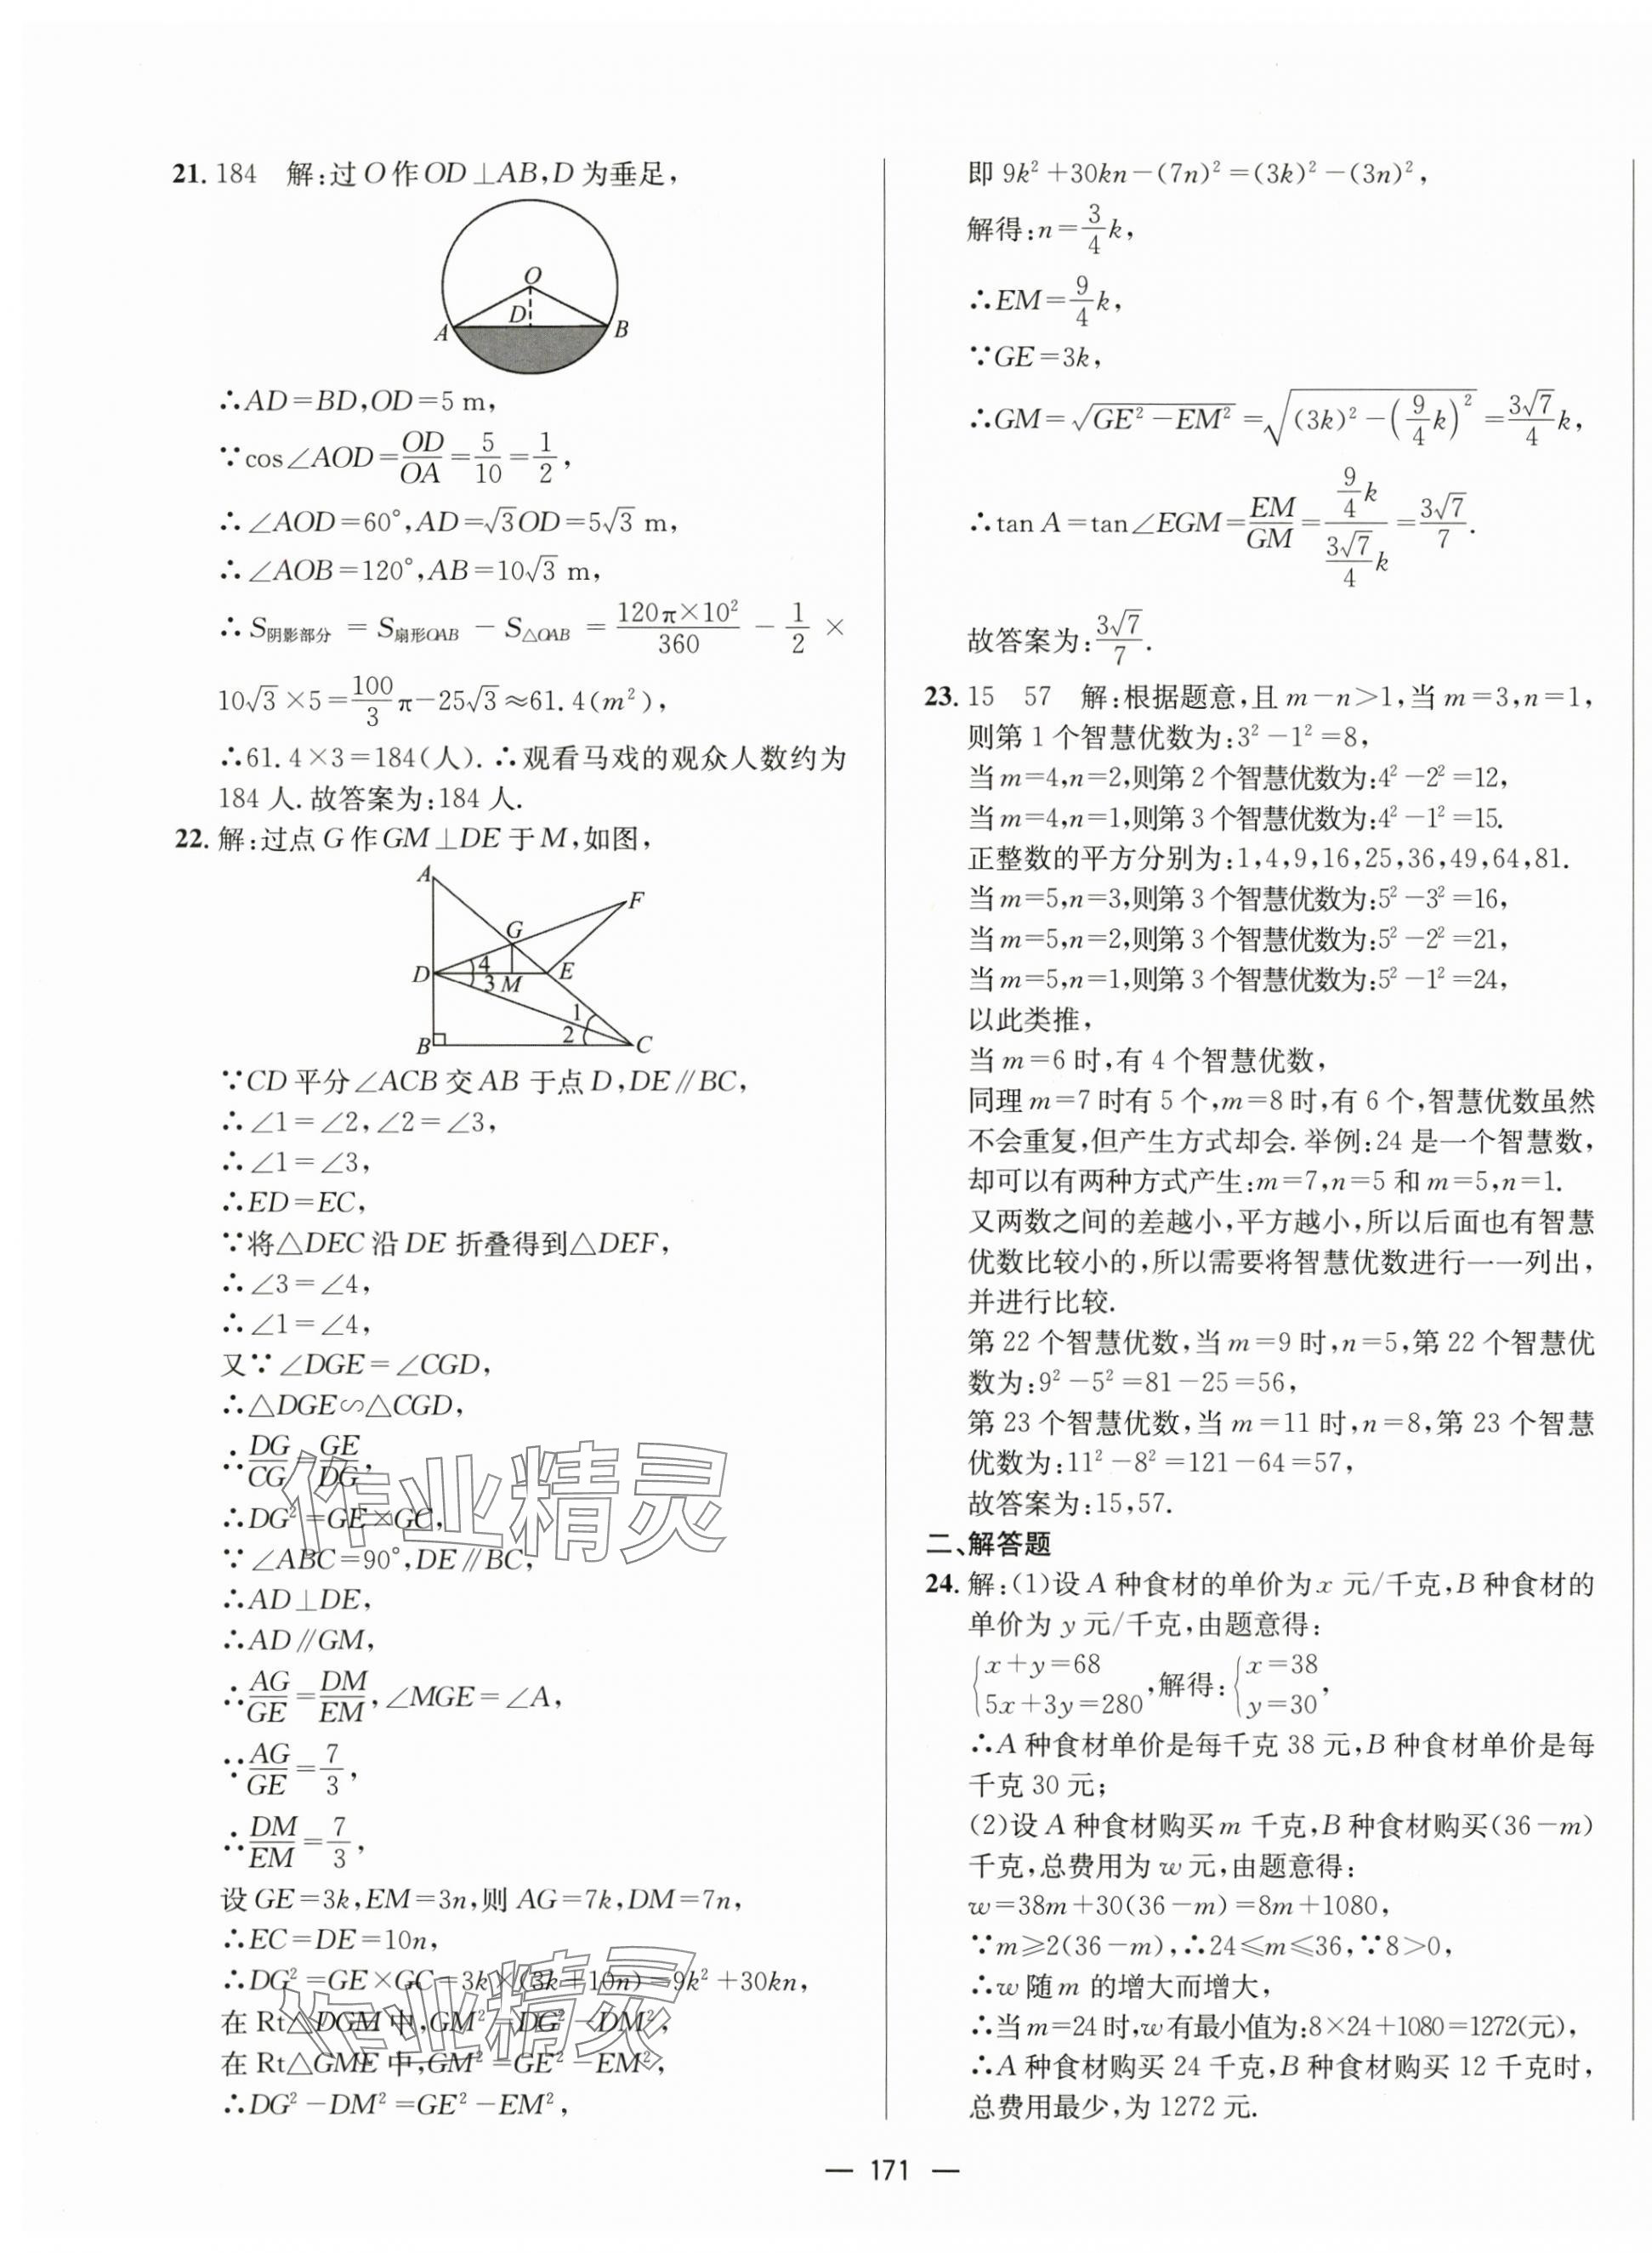 21. 184 解:过O作OD⊥AB,D为垂足,
O
D
A
B
∴AD=BD,OD=5 m,
∵cos∠AOD=OD/OA=5/10=1/2,
∴∠AOD=60°,AD=√3OD=5√3 m,
∴∠AOB=120°,AB=10√3 m,
∴S阴影部分 = S扇形OAB − S△OAB = 120π×10²/360 − 1/2 ×
10√3×5=100/3π−25√3≈61.4(m²),
∴61.4×3=184(人).∴观看马戏的观众人数约为
184人.故答案为:184人.
22. 解:过点G作GM⊥DE于M,如图,
A
F
G
D 4 E
3 M
1
2
B C
∵CD平分∠ACB交AB于点D,DE∥BC,
∴∠1=∠2,∠2=∠3,
∴∠1=∠3,
∴ED=EC,
∵将△DEC沿DE折叠得到△DEF,
∴∠3=∠4,
∴∠1=∠4,
又∵∠DGE=∠CGD,
∴△DGE∽△CGD,
∴DG/CG=GE/DG,
∴DG²=GE×GC,
∵∠ABC=90°,DE∥BC,
∴AD⊥DE,
∴AD∥GM,
∴AG/GE=DM/EM,∠MGE=∠A,
∵AG/GE=7/3,
∴DM/EM=7/3,
设GE=3k,EM=3n,则AG=7k,DM=7n,
∴EC=DE=10n,
∴DG²=GE×GC=3k×(3k+10n)=9k²+30kn,
在Rt△DGM中,GM²=DG²−DM²,
在Rt△GME中,GM²=GE²−EM²,
∴DG²−DM²=GE²−EM²,
作业精灵
作业精灵
即9k²+30kn−(7n)²=(3k)²−(3n)²,
解得:n=3/4k,
∴EM=9/4k,
∵GE=3k,
∴GM=√(GE²−EM²)=√((3k)²−(9/4k)²)=3√7/4k,
∴tan A=tan∠EGM=EM/GM=(9/4k)/(3√7/4k)=3√7/7.
故答案为:3√7/7.
23. 15 57 解:根据题意,且m−n>1,当m=3,n=1,
则第1个智慧优数为:3²−1²=8,
当m=4,n=2,则第2个智慧优数为:4²−2²=12,
当m=4,n=1,则第3个智慧优数为:4²−1²=15.
正整数的平方分别为:1,4,9,16,25,36,49,64,81.
当m=5,n=3,则第3个智慧优数为:5²−3²=16,
当m=5,n=2,则第3个智慧优数为:5²−2²=21,
当m=5,n=1,则第3个智慧优数为:5²−1²=24,
以此类推,
当m=6时,有4个智慧优数,
同理m=7时有5个,m=8时,有6个,智慧优数虽然
不会重复,但产生方式却会.举例:24是一个智慧数,
却可以有两种方式产生:m=7,n=5和m=5,n=1.
又两数之间的差越小,平方越小,所以后面也有智慧
优数比较小的,所以需要将智慧优数进行一一列出,
并进行比较.
第22个智慧优数,当m=9时,n=5,第22个智慧优
数为:9²−5²=81−25=56,
第23个智慧优数,当m=11时,n=8,第23个智慧
优数为:11²−8²=121−64=57,
故答案为:15,57.
二、解答题
24. 解:(1)设A种食材的单价为x元/千克,B种食材的
单价为y元/千克,由题意得:
{x+y=68 5x+3y=280,解得:{x=38 y=30,
∴A种食材单价是每千克38元,B种食材单价是每
千克30元;
(2)设A种食材购买m千克,B种食材购买(36−m)
千克,总费用为w元,由题意得:
w=38m+30(36−m)=8m+1080,
∵m≥2(36−m),∴24≤m≤36,∵8>0,
∴w随m的增大而增大,
∴当m=24时,w有最小值为:8×24+1080=1272(元),
∴A种食材购买24千克,B种食材购买12千克时,
总费用最少,为1272元.
— 171 —